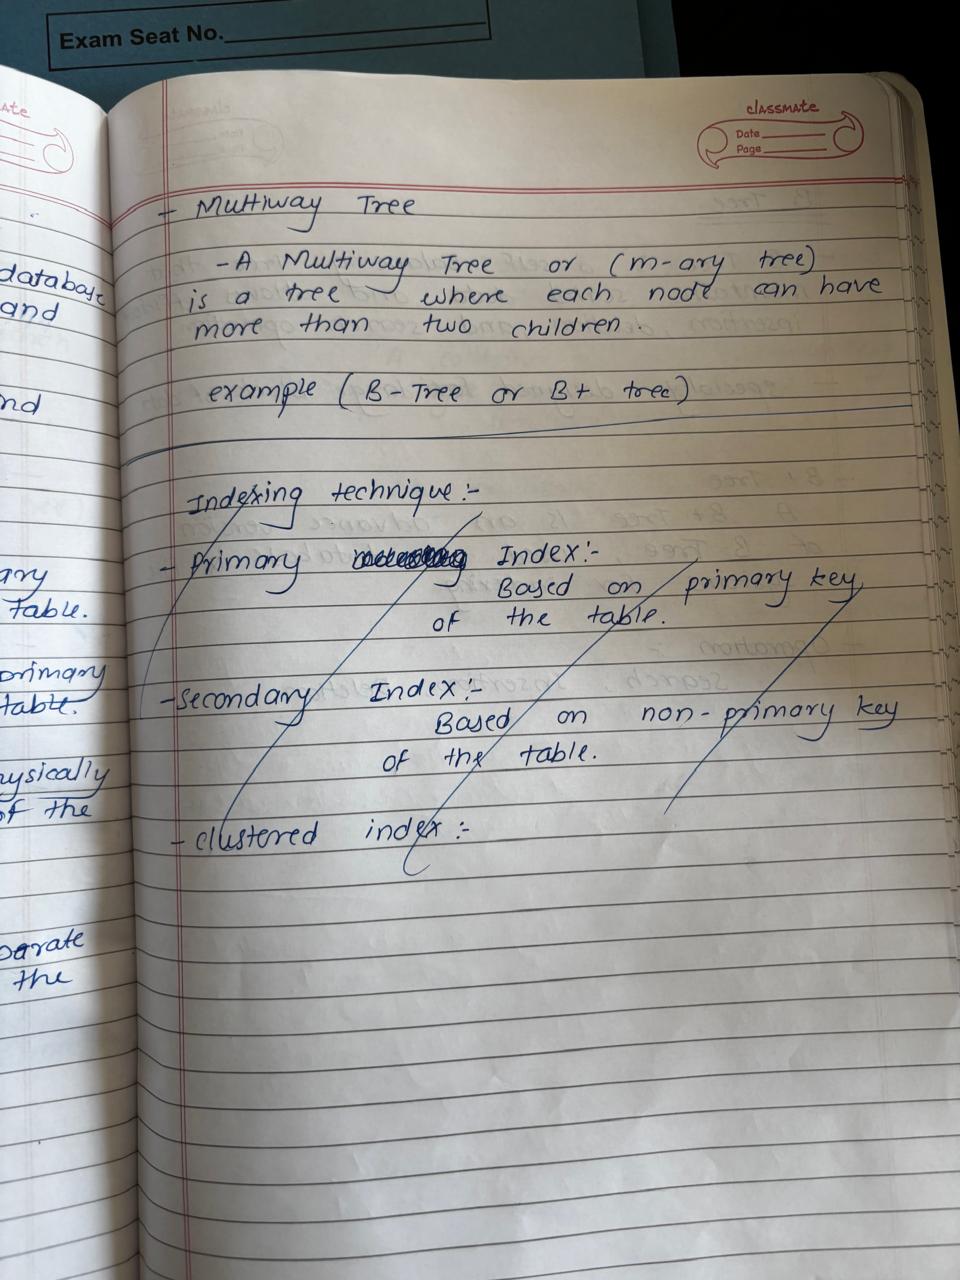 Exam Seat No.
ate
classmate
Date
Page
database
and
nd
ary
table.
primary
table.
hysically
of the
parate
the
- Multiway Tree
- A Multiway Tree or (m-ary tree)
is a tree where each node can have
more than two children.
example (B-Tree or B+ tree)
Indexing technique:-
- Primary Index:-
Based on primary key
of the table.
- Secondary Index:-
Based on non-primary key
of the table.
- clustered index:-